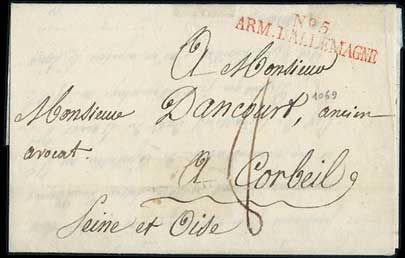 No. 5
ARM. D'ALLEMAGNE
A Monsieur
Monsieur Dancourt, ancien
1069
avocat.
A Corbeil,
Seine et Oise